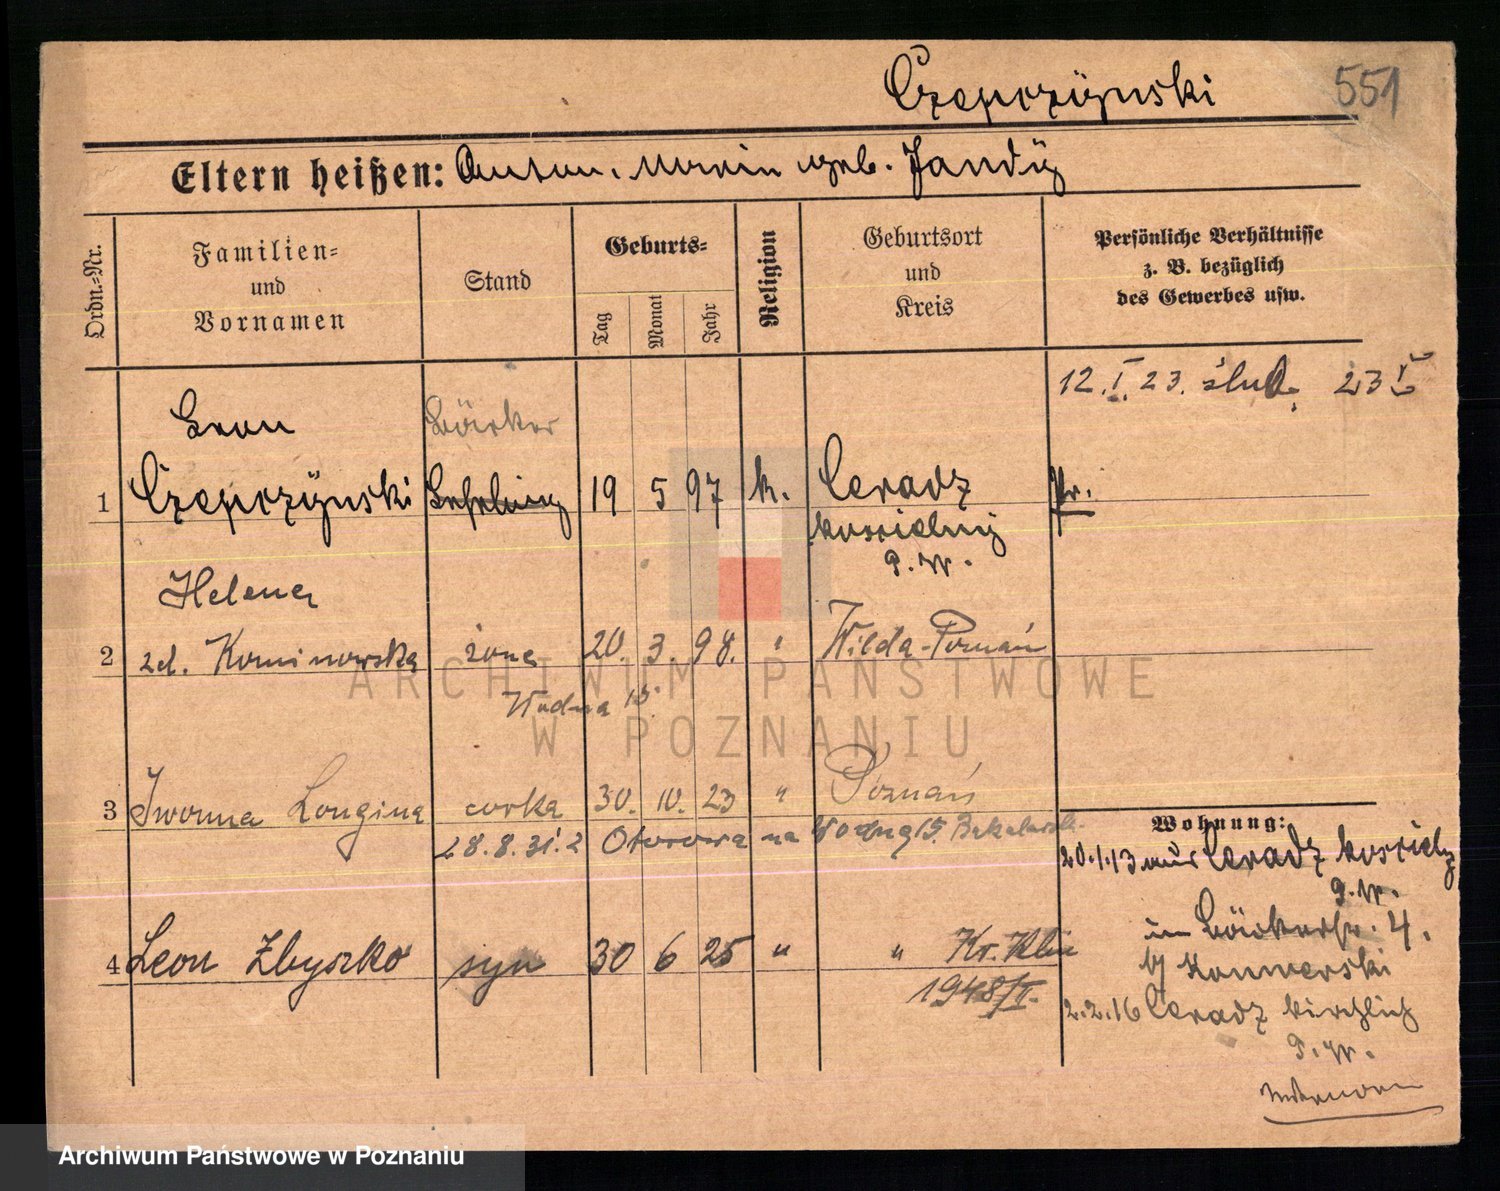 Czepczÿnski 551
Eltern heißen: Anton. Maria geb. Jandÿ
Ordn.=Nr.
Familien=
und
Vornamen
Stand
Geburts=
Tag
Monat
Jahr
Religion
Geburtsort
und
Kreis
Persönliche Verhältnisse
z. B. bezüglich
des Gewerbes usw.
12.I.23. ślub. 23
Leon Bäcker
1 Czepczÿnski Lehrling 19 5 97 k. Ceradz Pr.
koscielny
P. W.
Helena
2 zd. Kominowska żona 20. 3. 98. " Wilda-Poznań
Wodna 15.
3 Iwonna Longina corka 30. 10. 23 " Poznań
28.8.31. z Otorowa na Wodną 15.
4 Leon Zbyszko syn 30 6 25 " "
1948/II.
Wohnung:
20.1.13 aus Ceradz koscielny
P. W.
in Bäckerstr. 4.
2.2.16 Ceradz kirchlich
P. W.
ARCHIWUM PAŃSTWOWE
W POZNANIU
Archiwum Państwowe w Poznaniu